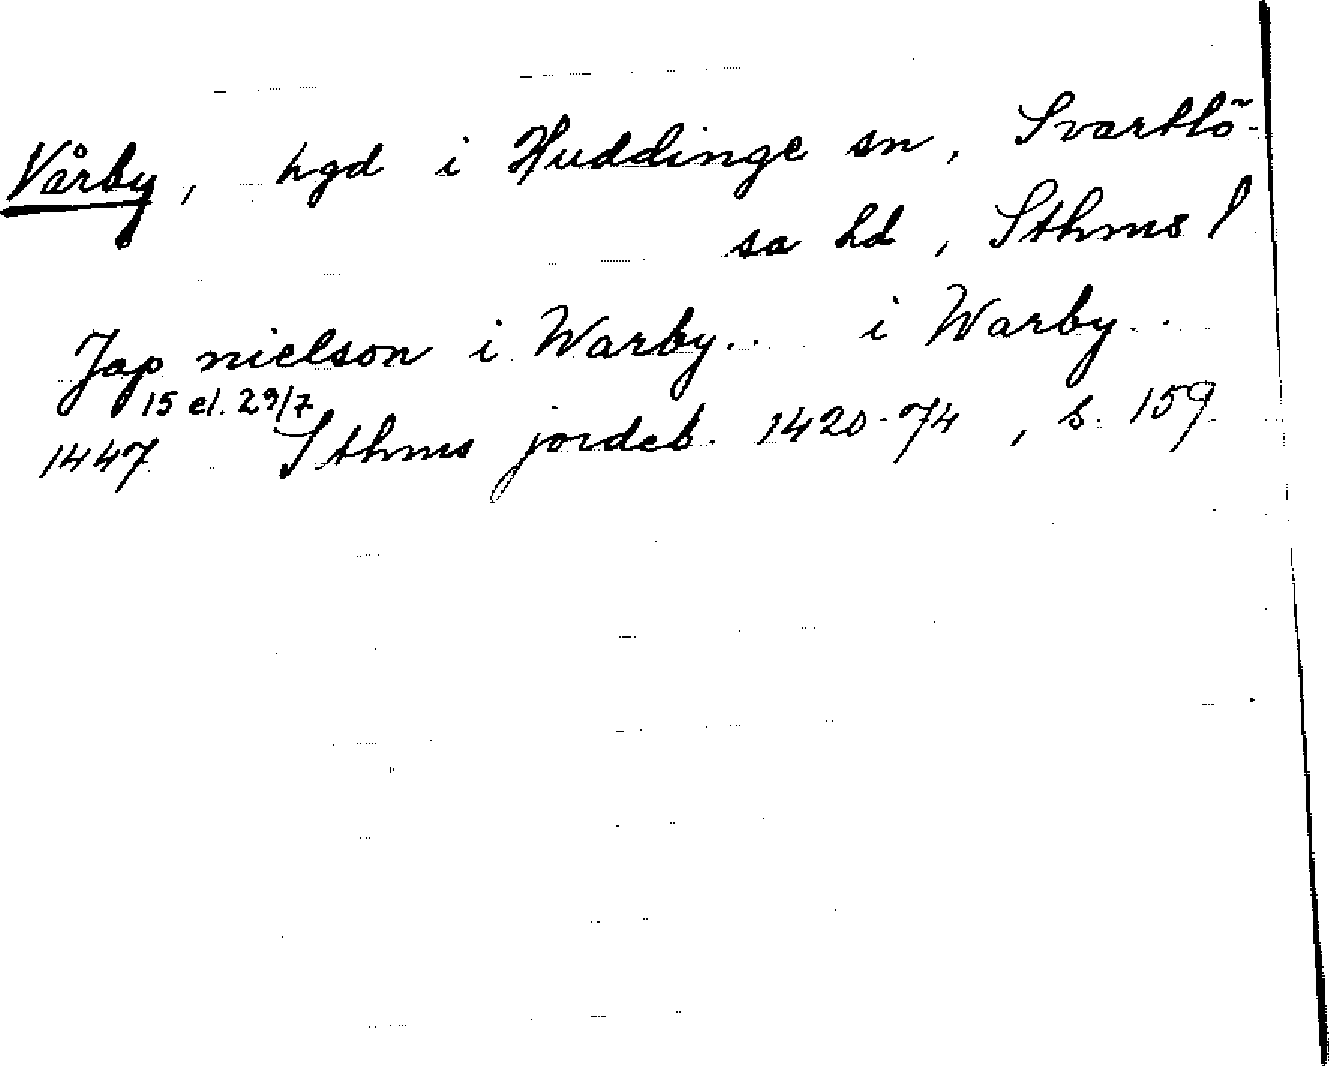 Vårby, hgd i Huddinge sn, Svartlö-
sa hd, Sthms l
Jap nielson i Warby.. i Warby..
15 el. 29/7
1447 Sthms jordeb. 1420-74, s. 159